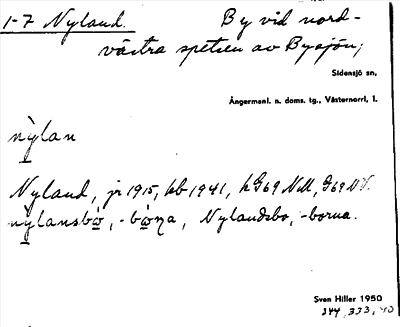 1-7 Nyland. By vid nord-
västra spetsen av Bysjön;
Sidensjö sn,
Ångermanl. n. doms. tg., Västernorrl. l.
nỳlan
Nyland, jr 1915, kb 1941, k G69 NV.
nỳlansbὼ, -bὼna, Nylandsbo, -borna.
Sven Hiller 1950